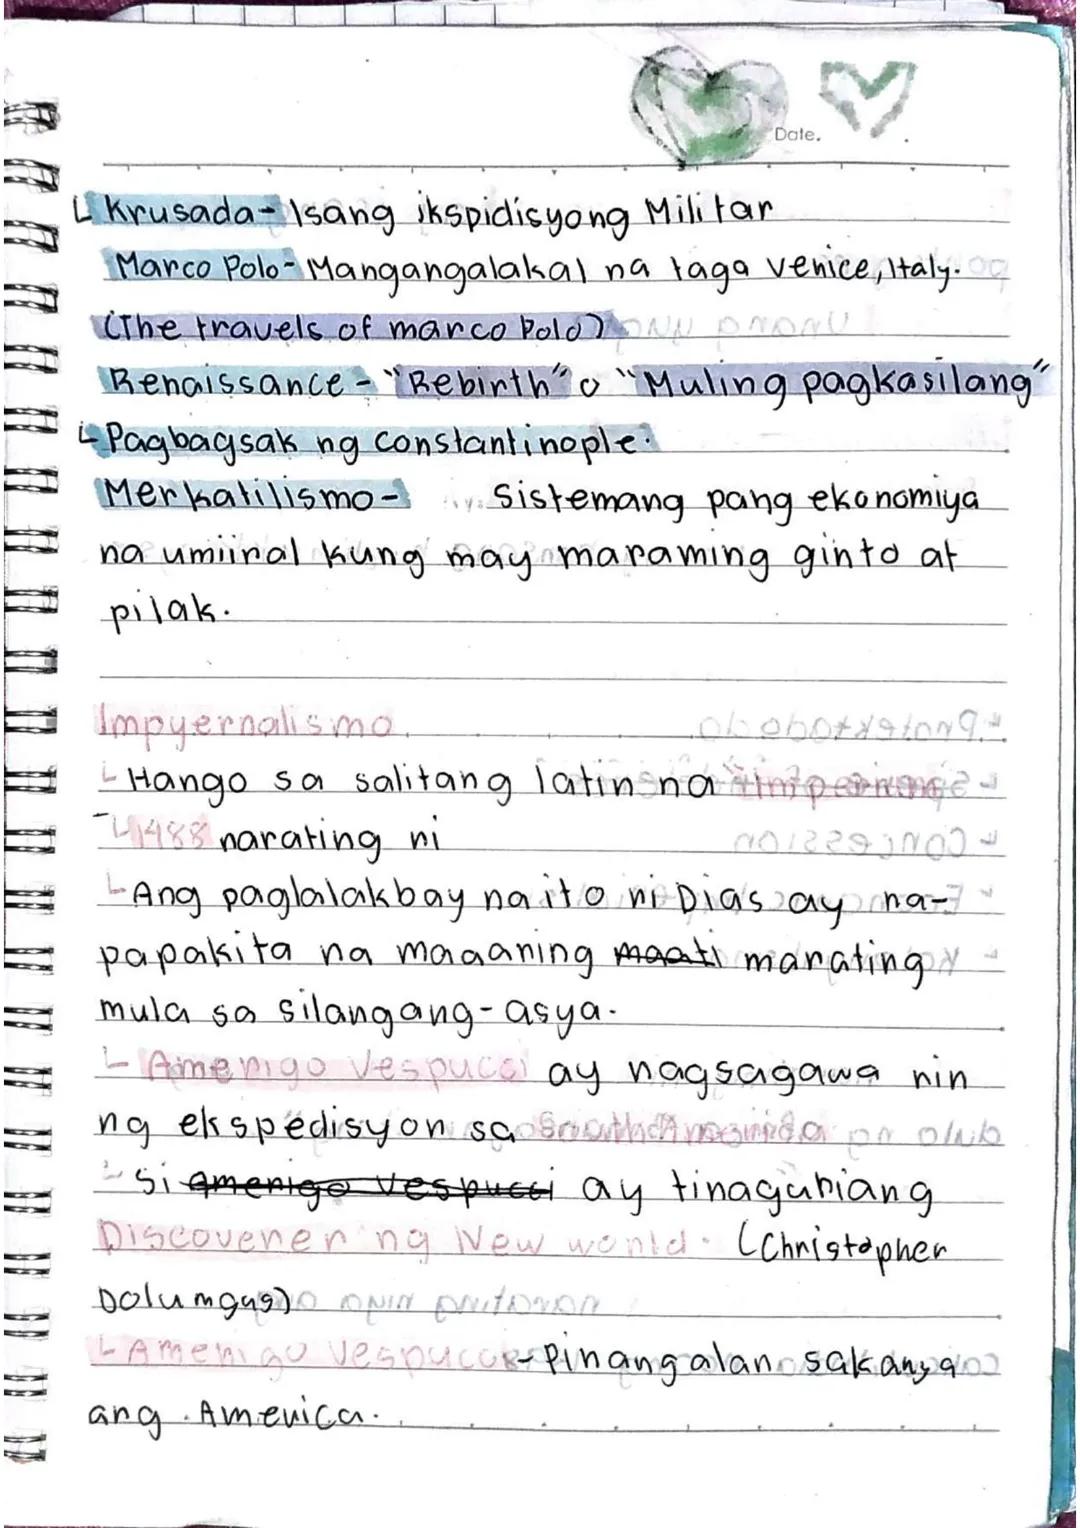 Date.
Krusada - Isang ikspidisyong Militar
Marco Polo - Mangangalakal na taga venice, Italy.
(The travels of marco Polo)
Renaissance - "Rebirth" o "Muling pagkasilang"
Pagbagsak ng constantinople.
Merkatilismo - Sistemang pang ekonomiya
na umiiral kung may maraming ginto at
pilak.
Impyernalismo.
Hango sa salitang latin na "imperium
1488 narating ni
Ang paglalakbay na ito ni Dias ay na-
papakita na maaaning maati marating
mula sa silangang-asya.
Amerigo Vespucci ay nagsagawa nin
ng ekspedisyon sa
Si amerigo vespucci ay tinaguriang
Discoverer ng New world. (Christopher
Dolumgus)
Amerigo Vespucci - Pinangalan sakanya
ang America.